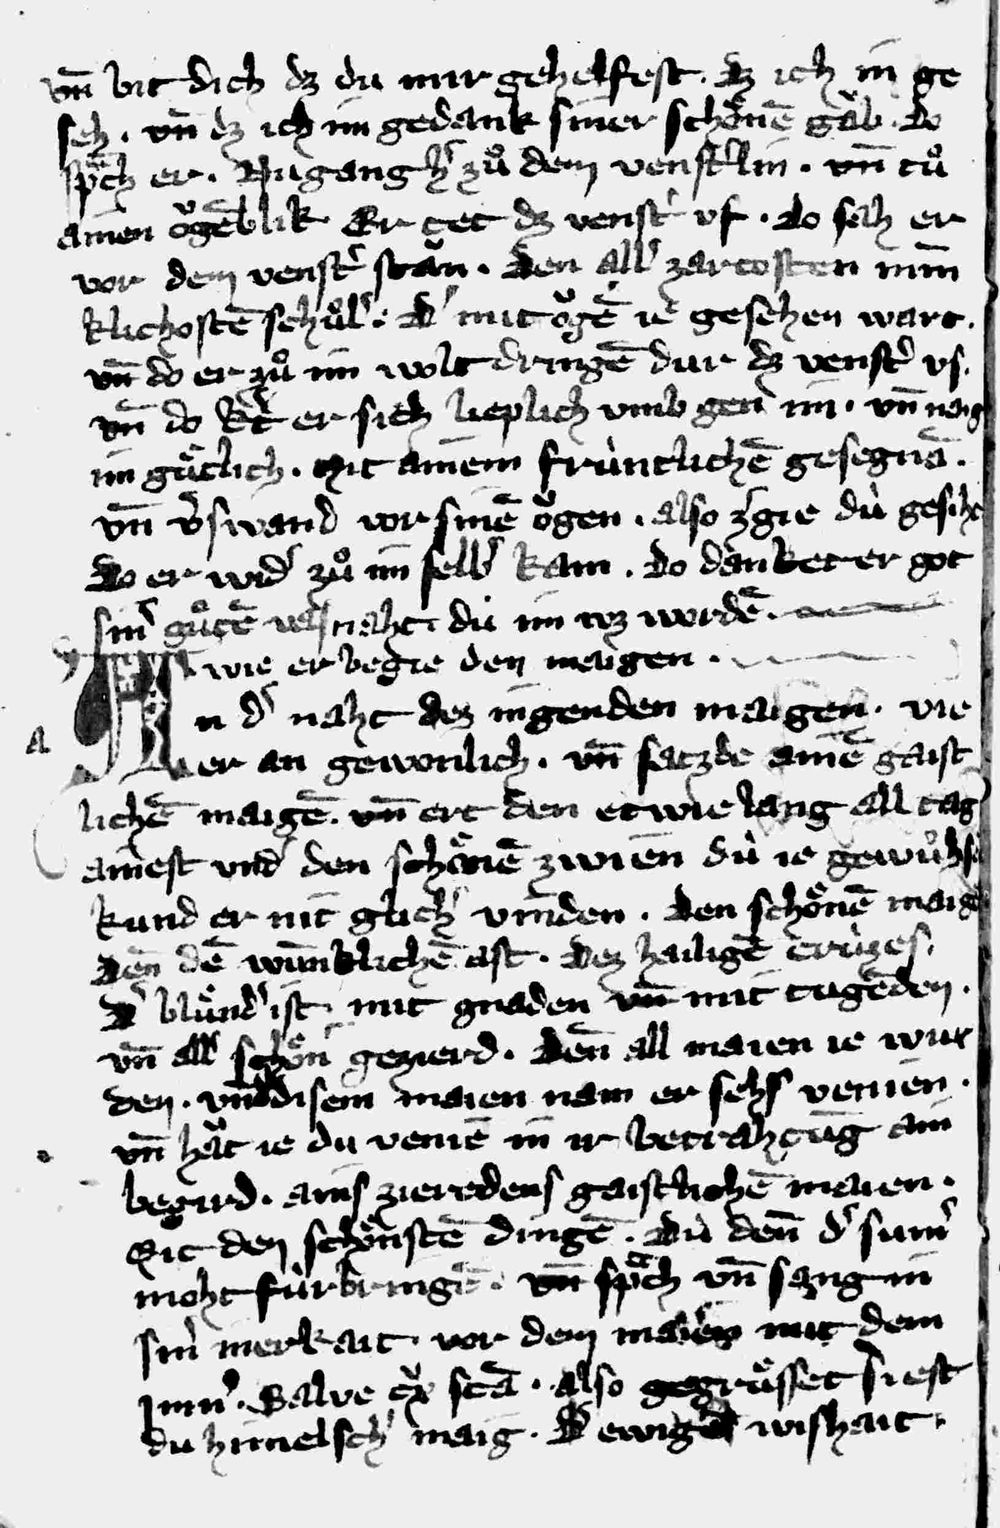 vn̄ bit dich dz du mir gehelfest. dz ich in ge
seh. vn̄ dz ich im gedank siner schönē gäb. do
sp̄ch er. Nu gang hˢ zů dem venstˢlin. vn̄ tů
ainen ögēblik Er tet dz venstˢ vf. do sah er
vor dem venstˢ stān. den allˢ zartosten min̄
klichostē schůlˢ. dˢ mit ögē ie gesehen wart.
vn̄ do er zů im wolt dringē dur dz venstˢ vs.
vn̄ do kert er sich lieplich vmb gen im. vn̄ naig
im gůtlich. mit ainem früntlichē gesegnā.
vn̄ v̄swand vor sinē ögen. also zˢgie dü gesiht
Do er widˢ zů im selbˢ kam. do danket er got
sinˢ gůtē vasnaht dü im wz wordē.
wie er begie den maigen.
An dˢ naht dez ingenden maigen. vie
er an gewonlich. vn̄ satzde ainē gaist
lichē maigē. vn̄ ert den etwie lang all tag
ainest vndˢ den schönē zwien dü ie gewůhsē
kund er nit glichˢ vinden. den schönē maigē
den dē wun̄klichē ast. dez hailigē crüzes.
dˢ blůndˢ ist mit gnaden vn̄ mit tugēden.
vn̄ allˢ schön gezierd. Den̄ all maien ie wur
den. vndˢ disem maien nam er sehs venien.
vn̄ hāt ie du veniē in ir betrahtūg ain
begird. ains zieredens gaistlichē maien.
Mit den schönstē dingē. dü den̄ dˢ sumˢ
moht fürbringē. vn̄ sp̄ch vn̄ sang in
sinˢ inerkait vor dem maien mit dem
ymnˢ. Salve cˢx sctā. also gegrüsset siest
du himelschˢ maig. Dˢ ewigē wishait